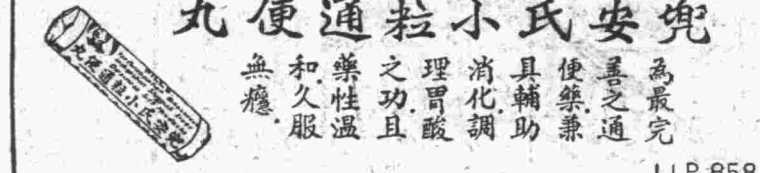 兜安氏小粒通便丸
為最完
善之通
便藥.兼
具輔助
消化.調
理胃酸
之功.且
藥性溫
和.久服
無癮.
兜安氏小粒通便丸
LLP.858